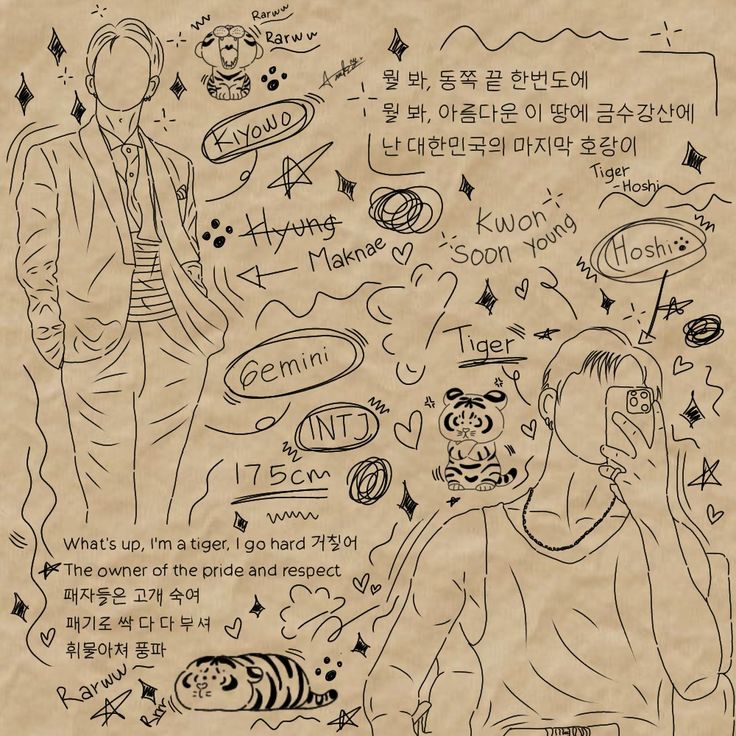 Rarww
Rarww
뭘 봐, 동쪽 끝 한번도에
뭘 봐, 아름다운 이 땅에 금수강산에
난 대한민국의 마지막 호랑이
Tiger
-Hoshi
KIYOWO
Hyung
Maknae
Kwon
Soon Young
Hoshi
Gemini
Tiger
INTJ
175cm
What's up, I'm a tiger, I go hard 거칠어
The owner of the pride and respect
패자들은 고개 숙여
패기로 싹 다 다 부셔
휘몰아쳐 풍파
Rarww
Rrrr